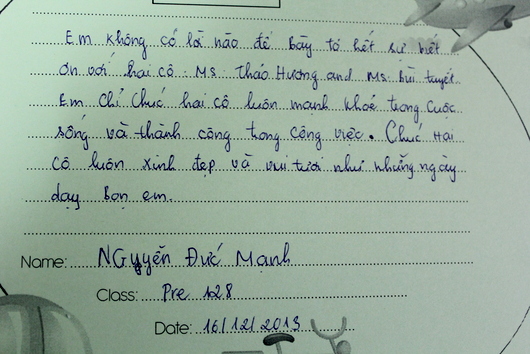 Em không có lời nào để bày tỏ hết sự biết
ơn với hai cô: Ms. Thảo Hương and Ms. Bùi tuyết.
Em chỉ chúc hai cô luôn mạnh khoẻ trong cuộc
sống và thành công trong công việc. Chúc Hai
cô luôn xinh đẹp và vui tươi như những ngày
dạy bọn em.
Name: NGuyễn Đức Mạnh
Class: Pre 128
Date: 16/12/2013